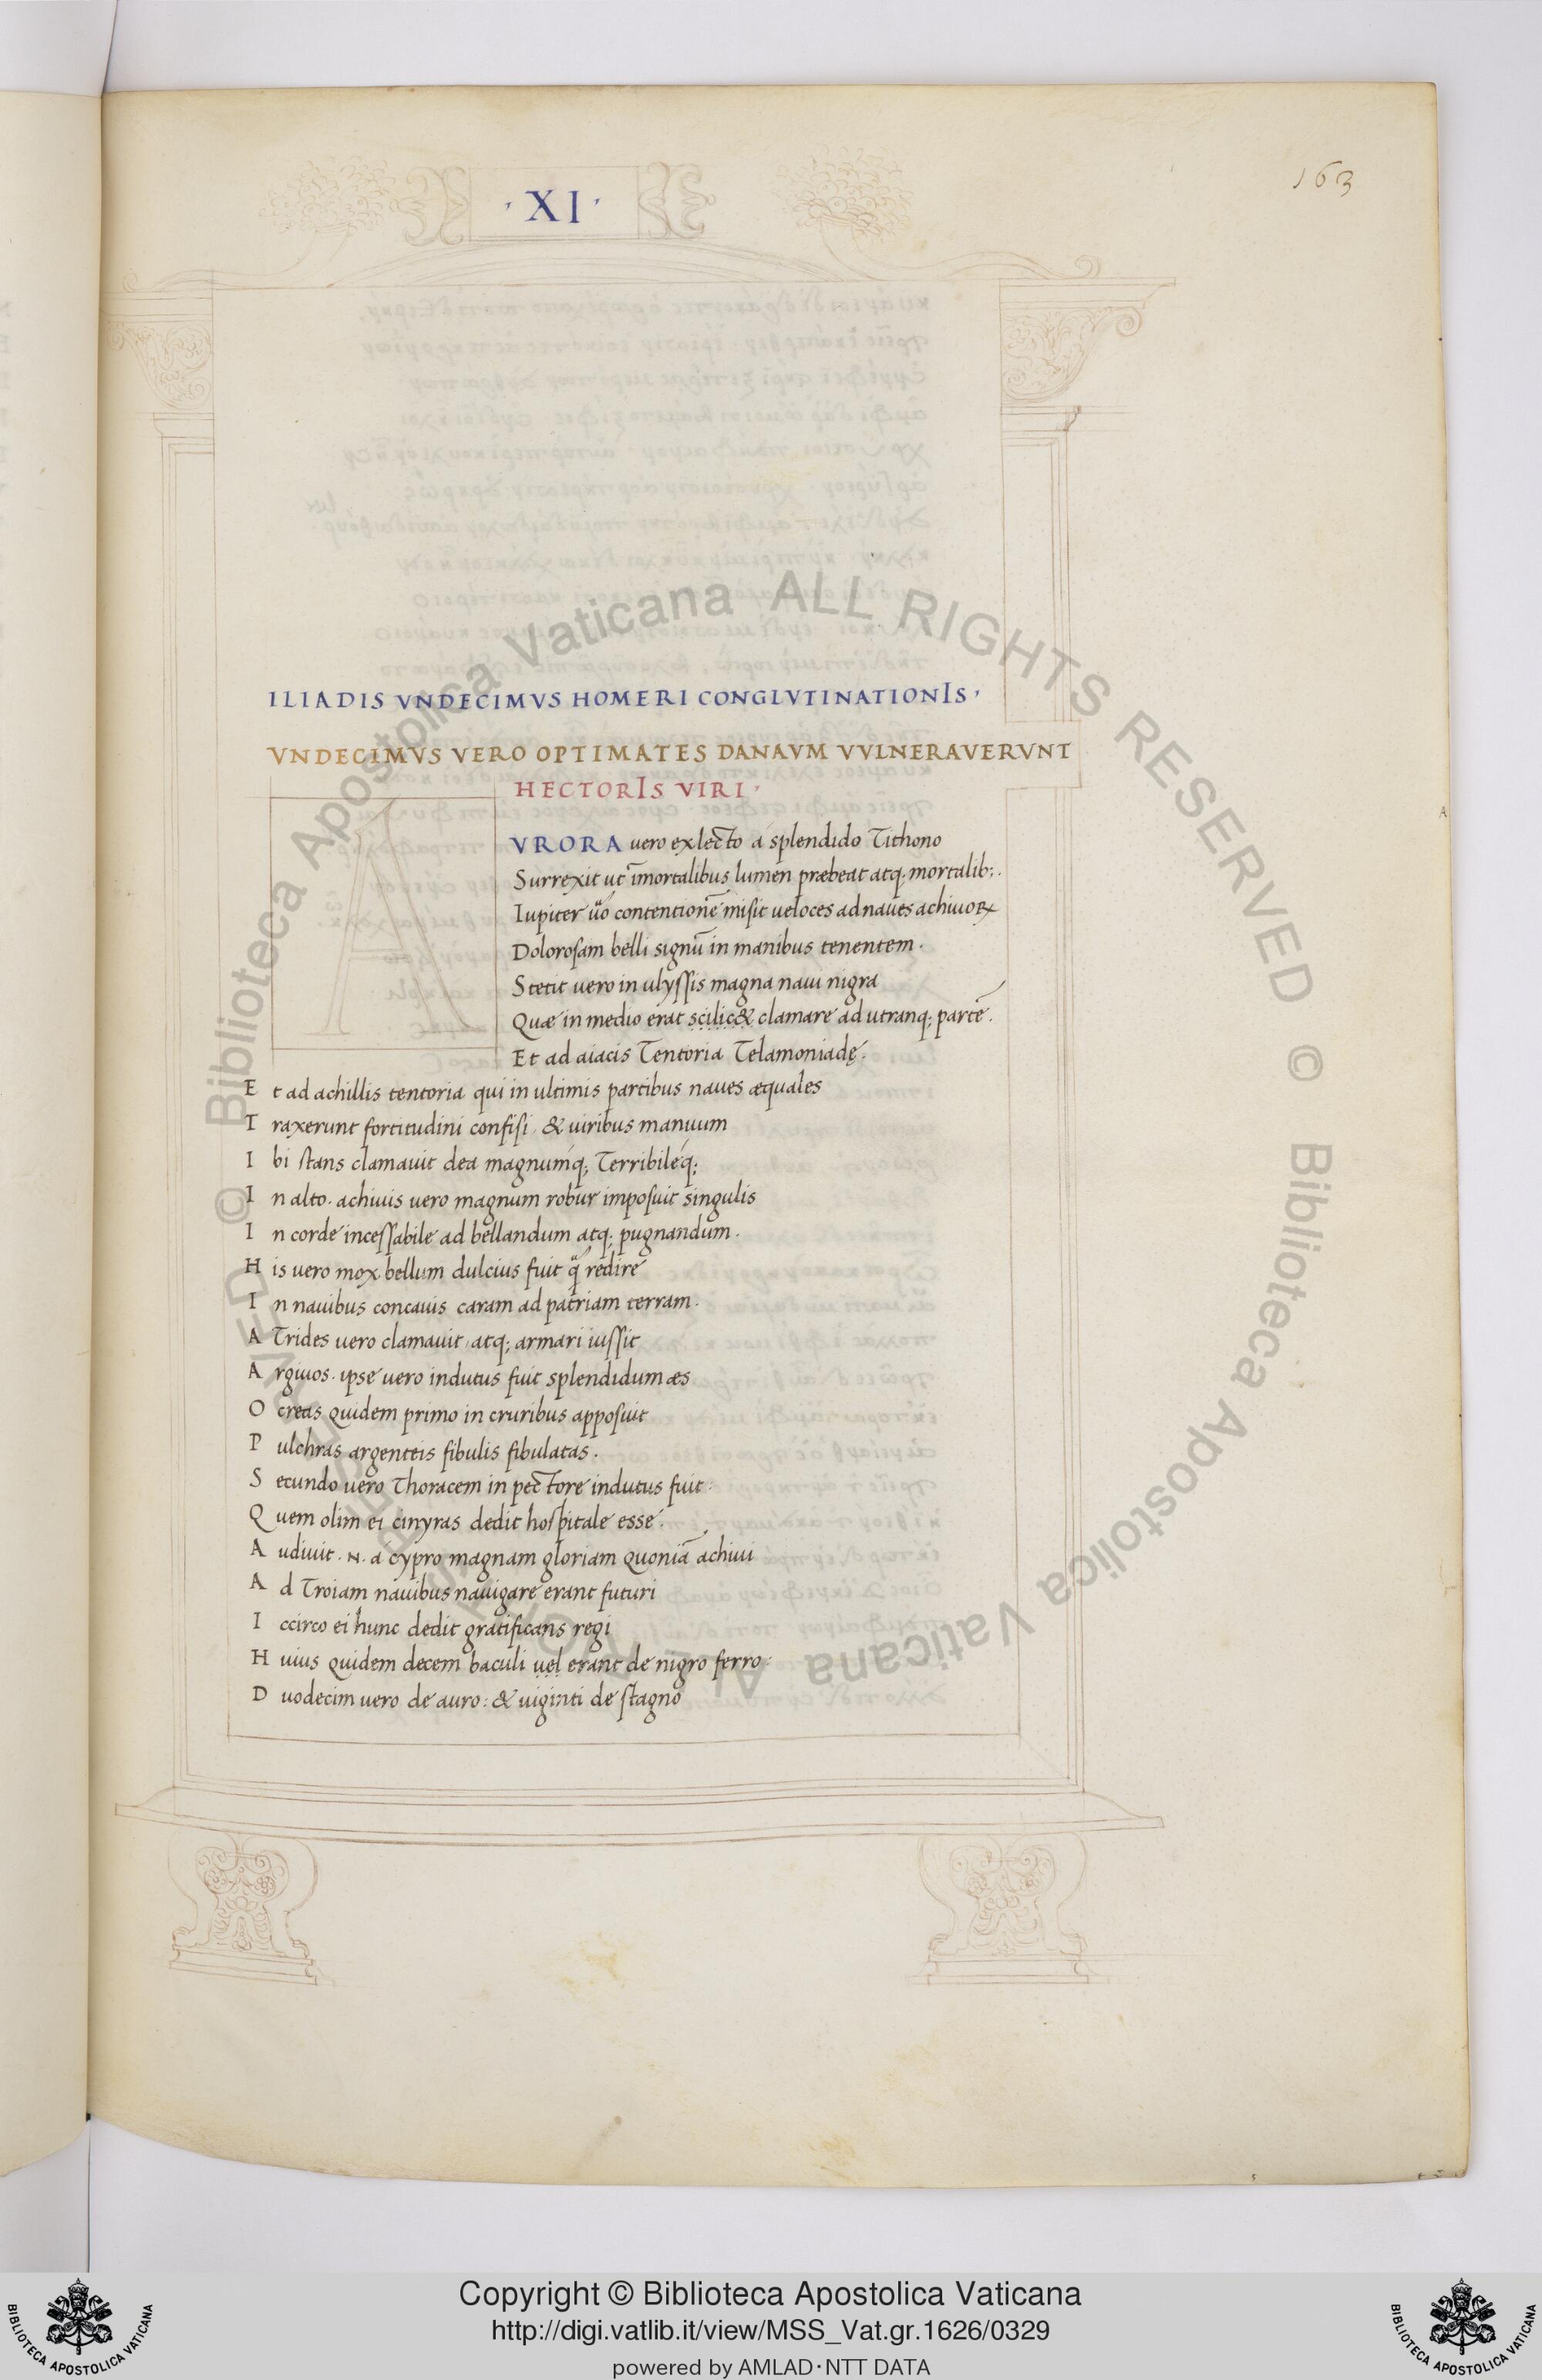 163
· XI ·
ILIADIS VNDECIMVS HOMERI CONGLVTINATIONIS ,
VNDECIMVS VERO OPTIMATES DANAVM VVLNERAVERVNT
HECTORIS VIRI ,
A
VRORA uero ex lecto a splendido Tithono
Surrexit ut īmortalibus lumen præbeat atq; mortalib; .
Iupiter ūo contentionē misit ueloces ad naues achiuoꝝ
Dolorosam belli signū in manibus tenentem .
Stetit uero in ulyssis magna naui nigra
Quæ in medio erat scilic& clamare ad utranq; partē .
Et ad aiacis Tentoria Telamoniadę .
E t ad achillis tentoria qui in ultimis partibus naues æquales
T raxerunt fortitudini confisi . & uiribus manuum
I bi stans clamauit dea magnumq; Terribileq;
I n alto . achiuis uero magnum robur imposuit singulis
I n corde incessabile ad bellandum atq; pugnandum .
H is uero mox bellum dulcius fuit q̈ redire
I n nauibus concauis caram ad patriam terram .
A Trides uero clamauit . atq; armari iussit
A rgiuos . ipse uero indutus fuit splendidum æs
O creas quidem primo in cruribus apposuit
P ulchras argenteis fibulis fibulatas .
S ecundo uero Thoracem in pectore indutus fuit .
Q uem olim ei cinyras dedit hospitale esse .
A udiuit . N . a cypro magnam gloriam quoniā achiui
A d Troiam nauibus nauigare erant futuri
I ccirco ei hunc dedit gratificans regi
H uius quidem decem baculi uel erant de nigro ferro :
D uodecim uero de auro : & uiginti de stagno
© Biblioteca Apostolica Vaticana ALL RIGHTS RESERVED © Biblioteca Apostolica Vaticana ALL RIGHTS RESERVED
Copyright © Biblioteca Apostolica Vaticana
http://digi.vatlib.it/view/MSS_Vat.gr.1626/0329
powered by AMLAD·NTT DATA
BIBLIOTECA APOSTOLICA VATICANA
BIBLIOTECA APOSTOLICA VATICANA